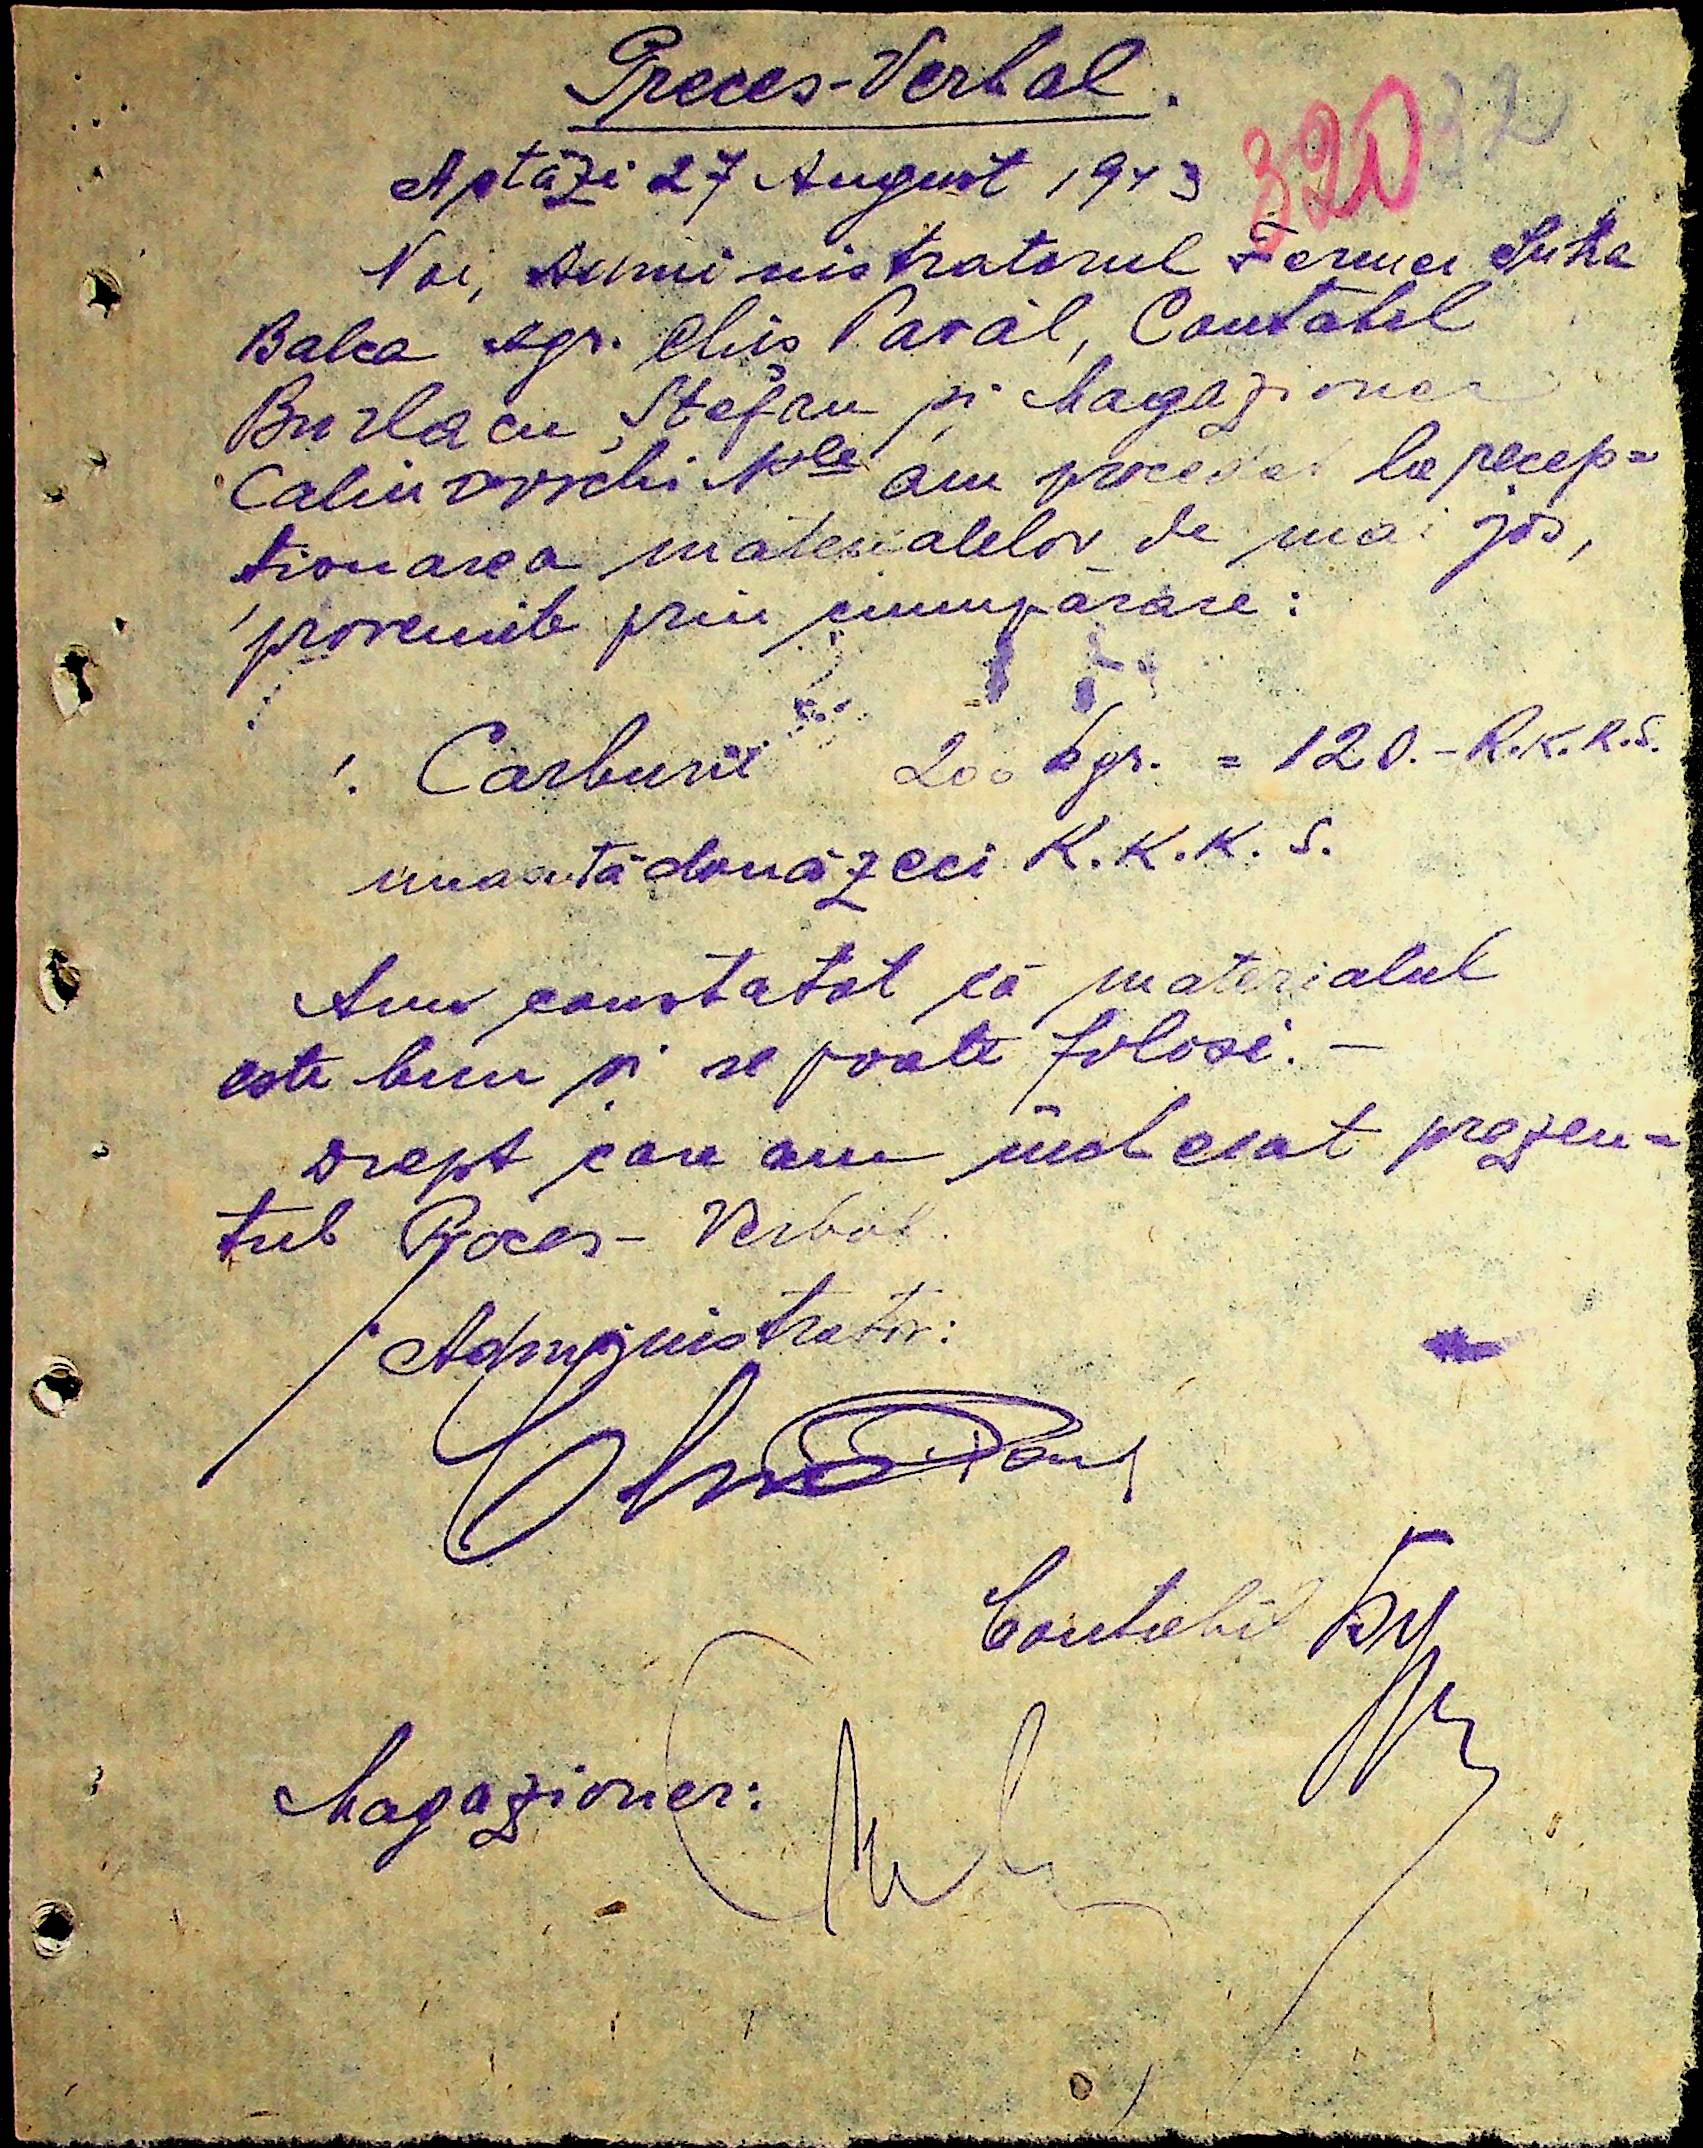 Proces-Verbal.
320 32
Astăzi 27 August 1943
Noi, Administratorul Fermei Suha
Balca Agr. Chiș Pavăl, Contabil
Burlacu Ștefan și Magazioner
Calinovschi Nlae am procedat la recep=
ționarea materialelor de mai jos,
provenite prin cumpărare:
1. Carburit 200 kgr. = 120.- R.K.K.S.
unasutădouăzeci R.K.K.S.
Am constatat că materialul
este bun și se poate folosi.-
Drept care am încheiat prezen=
tul Proces-Verbal.
Administrator:
Contabil
Magazioner: